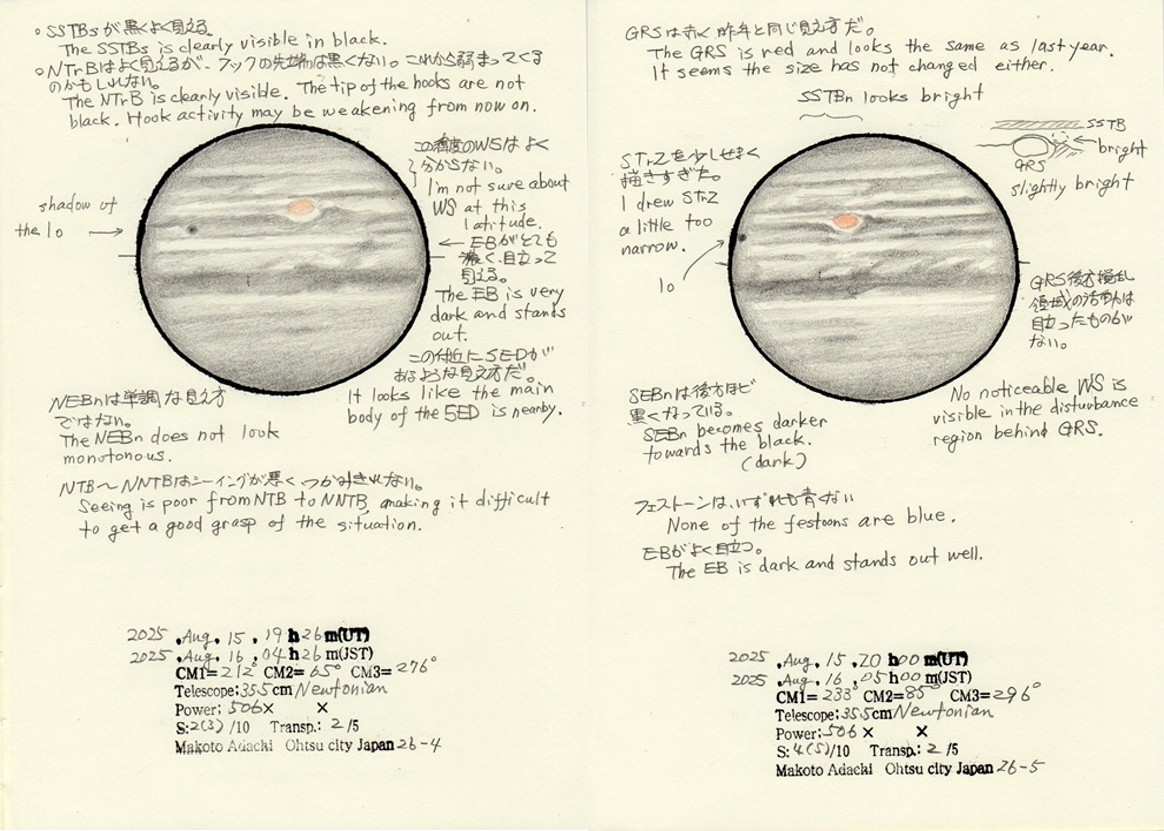 ○SSTBsが黒くよく見える
The SSTBs is clearly visible in black.
○NTrBはよく見えるが、フックの先端は黒くない。これから弱まってくる
のかもしれない。
The NTrB is clearly visible. The tip of the hooks are not
black. Hook activity may be weakening from now on.
shadow of
the Io →
この緯度のWSはよく
分からない。
I'm not sure about
WS at this
latitude.
← EBがとても
濃く、目立って
見える。
The EB is very
dark and stands
out.
この付近にSEDが
あるような見え方だ。
It looks like the main
body of the SED is nearby.
NEBnは単調な見え方
ではない。
The NEBn does not look
monotonous.
NTB〜NNTBはシーイングが悪くつかみきれない。
Seeing is poor from NTB to NNTB, making it difficult
to get a good grasp of the situation.
2025 .Aug. 15 . 19 h 26 m(UT)
2025 .Aug. 16 . 04 h 26 m(JST)
CM1=212° CM2=65° CM3=276°
Telescope:35.5cm Newtonian
Power: 506× ×
S:2(3)/10 Transp.: 2/5
Makoto Adachi Ohtsu city Japan 26-4
GRSは赤く昨年と同じ見え方だ。
The GRS is red and looks the same as last year.
It seems the size has not changed either.
SSTBn looks bright
SSTB
bright
GRS
slightly bright
STrZを少しせまく
描きすぎた。
I drew STrZ
a little too
narrow.
Io
GRS後方撹乱
領域の活動は
目立ったものが
ない。
No noticeable WS is
visible in the disturbance
region behind GRS.
SEBnは後方ほど
黒くなっている。
SEBn becomes darker
towards the black.
(dark)
フェストーンは、いずれも青くない
None of the festoons are blue.
EBがよく目立つ。
The EB is dark and stands out well.
2025 .Aug. 15 .20 h 00 m(UT)
2025 .Aug. 16 .05 h 00 m(JST)
CM1=233° CM2=85° CM3=296°
Telescope:35.5cm Newtonian
Power:506 × ×
S:4(5)/10 Transp.: 2 /5
Makoto Adachi Ohtsu city Japan 26-5